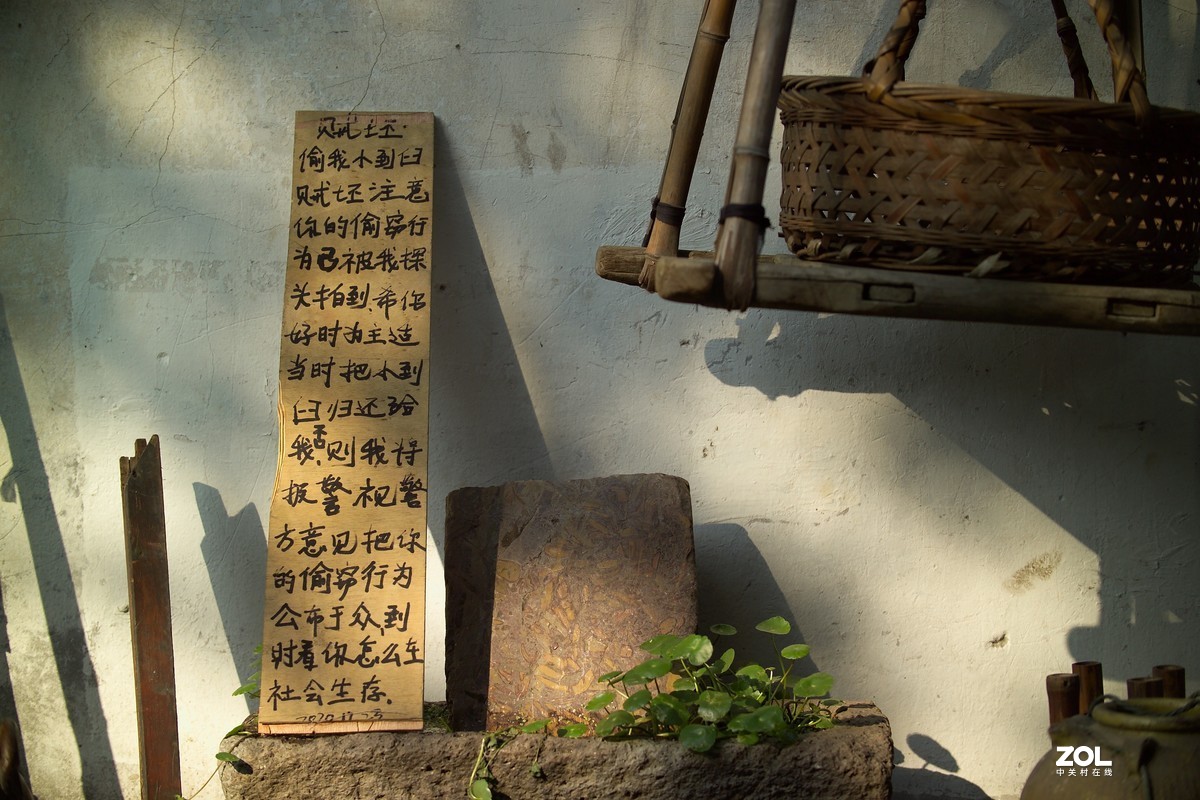 贼坯
偷我小到臼
贼坯注意
你的偷窃行
为己被我探
头拍到、希你
好时为主造
当时把小到
臼归还给
我,否则我将
报警视警
方意见把你
的偷窃行为
公布于众,到
时看你怎么在
社会生存.
ZOL
中关村在线